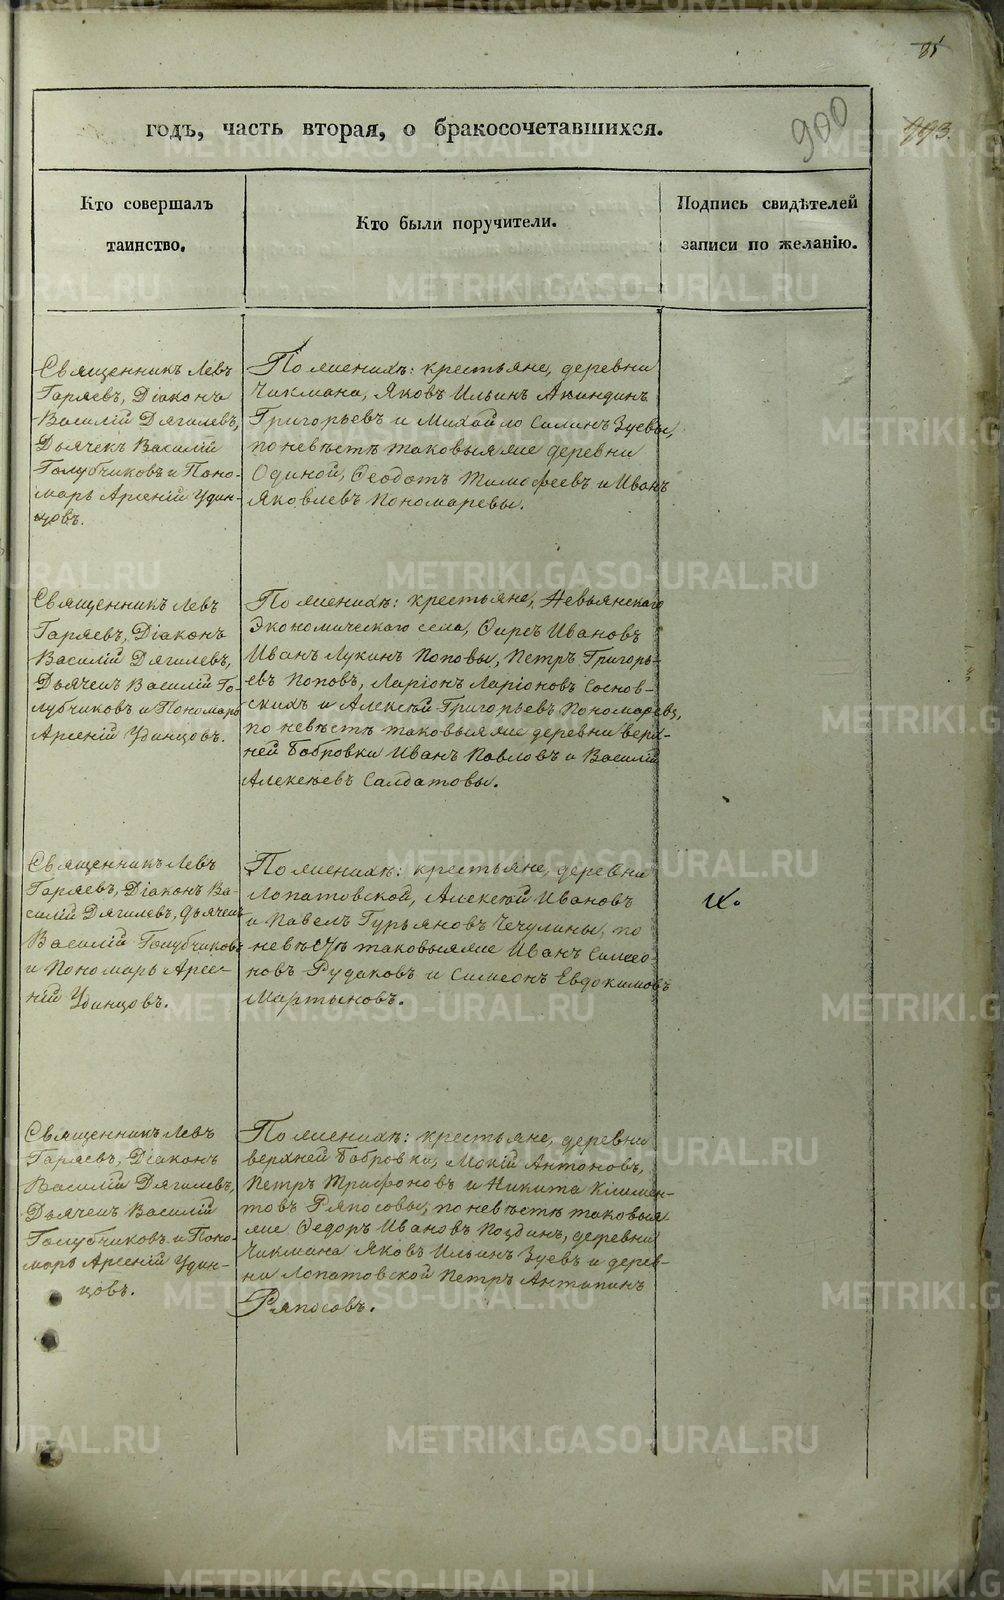 85
900
993.
годъ, часть вторая, о бракосочетавшихся.
Кто совершалъ
таинство.
Кто были поручители.
Подпись свидѣтелей
записи по желанію.
Священникъ Левъ
Гаряевъ, Діаконъ
Василій Дягилевъ,
Дьячекъ Василій
Голубчиковъ и Поно-
марь Арсеній Удин-
цовъ.
По женихѣ: крестьяне, деревни
Чикмана, Яковъ Ильинъ Акиндинъ
Григорьевъ и Михайло Савинъ Зуевы,
по невѣстѣ таковыяже деревни
Одиной, Ѳеодотъ Тимофеевъ и Иванъ
Яковлевъ Пономаревы.
Священникъ Левъ
Гаряевъ, Діаконъ
Василій Дягилевъ,
Дьячекъ Василій Го-
лубчиковъ и Пономарь
Арсеній Удинцовъ.
По женихѣ: крестьяне, Невьянскаго
Экономическаго села, Ѳирсъ Ивановъ
Иванъ Лукинъ Поповы, Петръ Григорь-
евъ Поповъ, Ларіонъ Ларіоновъ Соснов-
скихъ и Алексѣй Григорьевъ Пономаревъ,
по невѣстѣ таковыяже деревни верх-
ней Бобровки Иванъ Павловъ и Василій
Алексѣевъ Салдатовы.
Священникъ Левъ
Гаряевъ, Діаконъ Ва-
силій Дягилевъ, Дьячекъ
Василій Голубчиковъ
и Пономарь Арсе-
ній Удинцовъ.
По женихѣ: крестьяне, деревни
Лопатовской, Алексѣй Ивановъ
и Павелъ Гурьяновъ Чечулины, по
невѣстѣ таковыяже Иванъ Симео-
новъ Рудаковъ и Симеонъ Евдокимовъ
Мартыновъ.
IX.
Священникъ Левъ
Гаряевъ, Діаконъ
Василій Дягилевъ,
Дьячекъ Василій
Голубчиковъ и Поно-
марь Арсеній Удин-
цовъ.
По женихѣ: крестьяне, деревни
верхней Бобровки, Мокій Антоновъ,
Петръ Трифоновъ и Никита Климен-
товъ Ряпосовы, по невѣстѣ таковыя
же Ѳедоръ Ивановъ Поздинъ, деревни
Чикмана Яковъ Ильинъ Зуевъ и дерев-
ни Лопатовской Петръ Антипинъ
Ряпосовъ.
METRIKI.GASO-URAL.RU